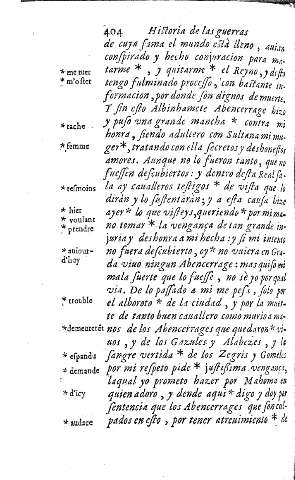 404 Historia de las guerras
de cuya fama el mundo està lleno, auian
conspirado y hecho conjuracion para ma-
* me tuer tarme *, y quitarme * el Reyno, y desto
* m'oster tengo fulminado processo, con bastante in-
formacion, por donde son dignos de muerte.
Y sin esto Albinhamete Abencerrage hizo
* tache y puso vna grande mancha * contra mi
honra, siendo adultero con Sultana mi mu-
* femme ger *, tratando con ella secretos y deshonestos
amores. Aunque no lo fueron tanto, que no
fuessen descubiertos: y dentro desta Real sa-
* tesmoins la ay caualleros testigos * de vista que lo
diràn y lo sustentaràn; y a esta causa hize
* hier ayer * lo que visteys, queriendo * por mi ma-
* voulant
* prendre no tomar * la vengança de tan grande in-
juria y deshonra a mi hecha: y si mi intento
* aujour- no fuera descubierto, oy * no vuiera en Gra-
d'huy nada viuo ningun Abencerrage: mas quiso mi
mala suerte que lo fuesse, no sè yo por què
via. De lo passado a mi me pesa, solo por
* trouble el alboroto * de la ciudad, y por la muer-
te de tanto buen cauallero como murio a ma-
* demeurerēt nos de los Abencerrages que quedaron * vi-
uos, y de los Gazules y Alabezes, y la
* espandu sangre vertida * de los Zegris y Gomeles
* demande por mi respeto pide * justissima vengança,
laqual yo prometo hazer por Mahoma en
* d'icy quien adoro, y desde aqui * digo y doy por
sentencia que los Abencerrages que son cul-
* audace pados en esto, por tener atreuimiento * de